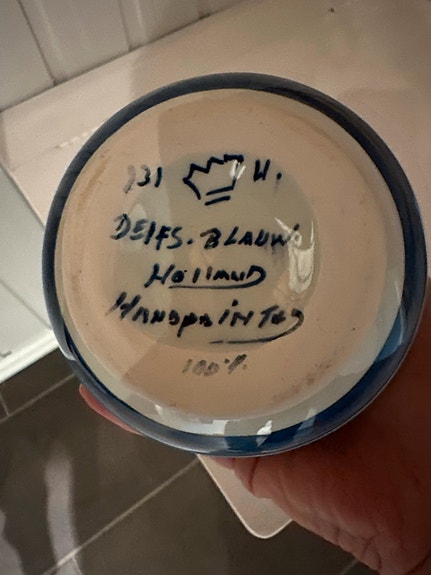 131 H.
DELFS. BLAUW
HOLLAND
HANDPAINTED
100%